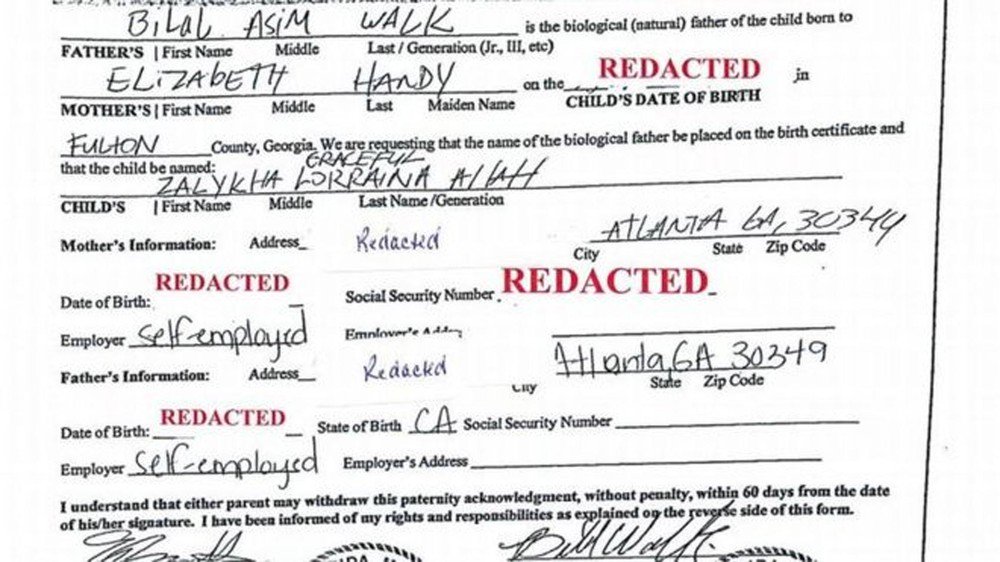 Bilal Asim Walk is the biological (natural) father of the child born to
FATHER'S | First Name Middle Last / Generation (Jr., III, etc)
Elizabeth Handy on the REDACTED in
MOTHER'S | First Name Middle Last Maiden Name CHILD'S DATE OF BIRTH
Fulton County, Georgia. We are requesting that the name of the biological father be placed on the birth certificate and
that the child be named: GRACEFUL
ZALYKHA LORRAINA Allah
CHILD'S | First Name Middle Last Name /Generation
Mother's Information: Address Redacted ATLANTA GA, 30349
City State Zip Code
Date of Birth: REDACTED Social Security Number REDACTED
Employer self-employed Employer's
Father's Information: Address Redacted Atlanta, GA 30349
City State Zip Code
Date of Birth: REDACTED State of Birth CA Social Security Number
Employer self-employed Employer's Address
I understand that either parent may withdraw this paternity acknowledgment, without penalty, within 60 days from the date
of his/her signature. I have been informed of my rights and responsibilities as explained on the reverse side of this form.